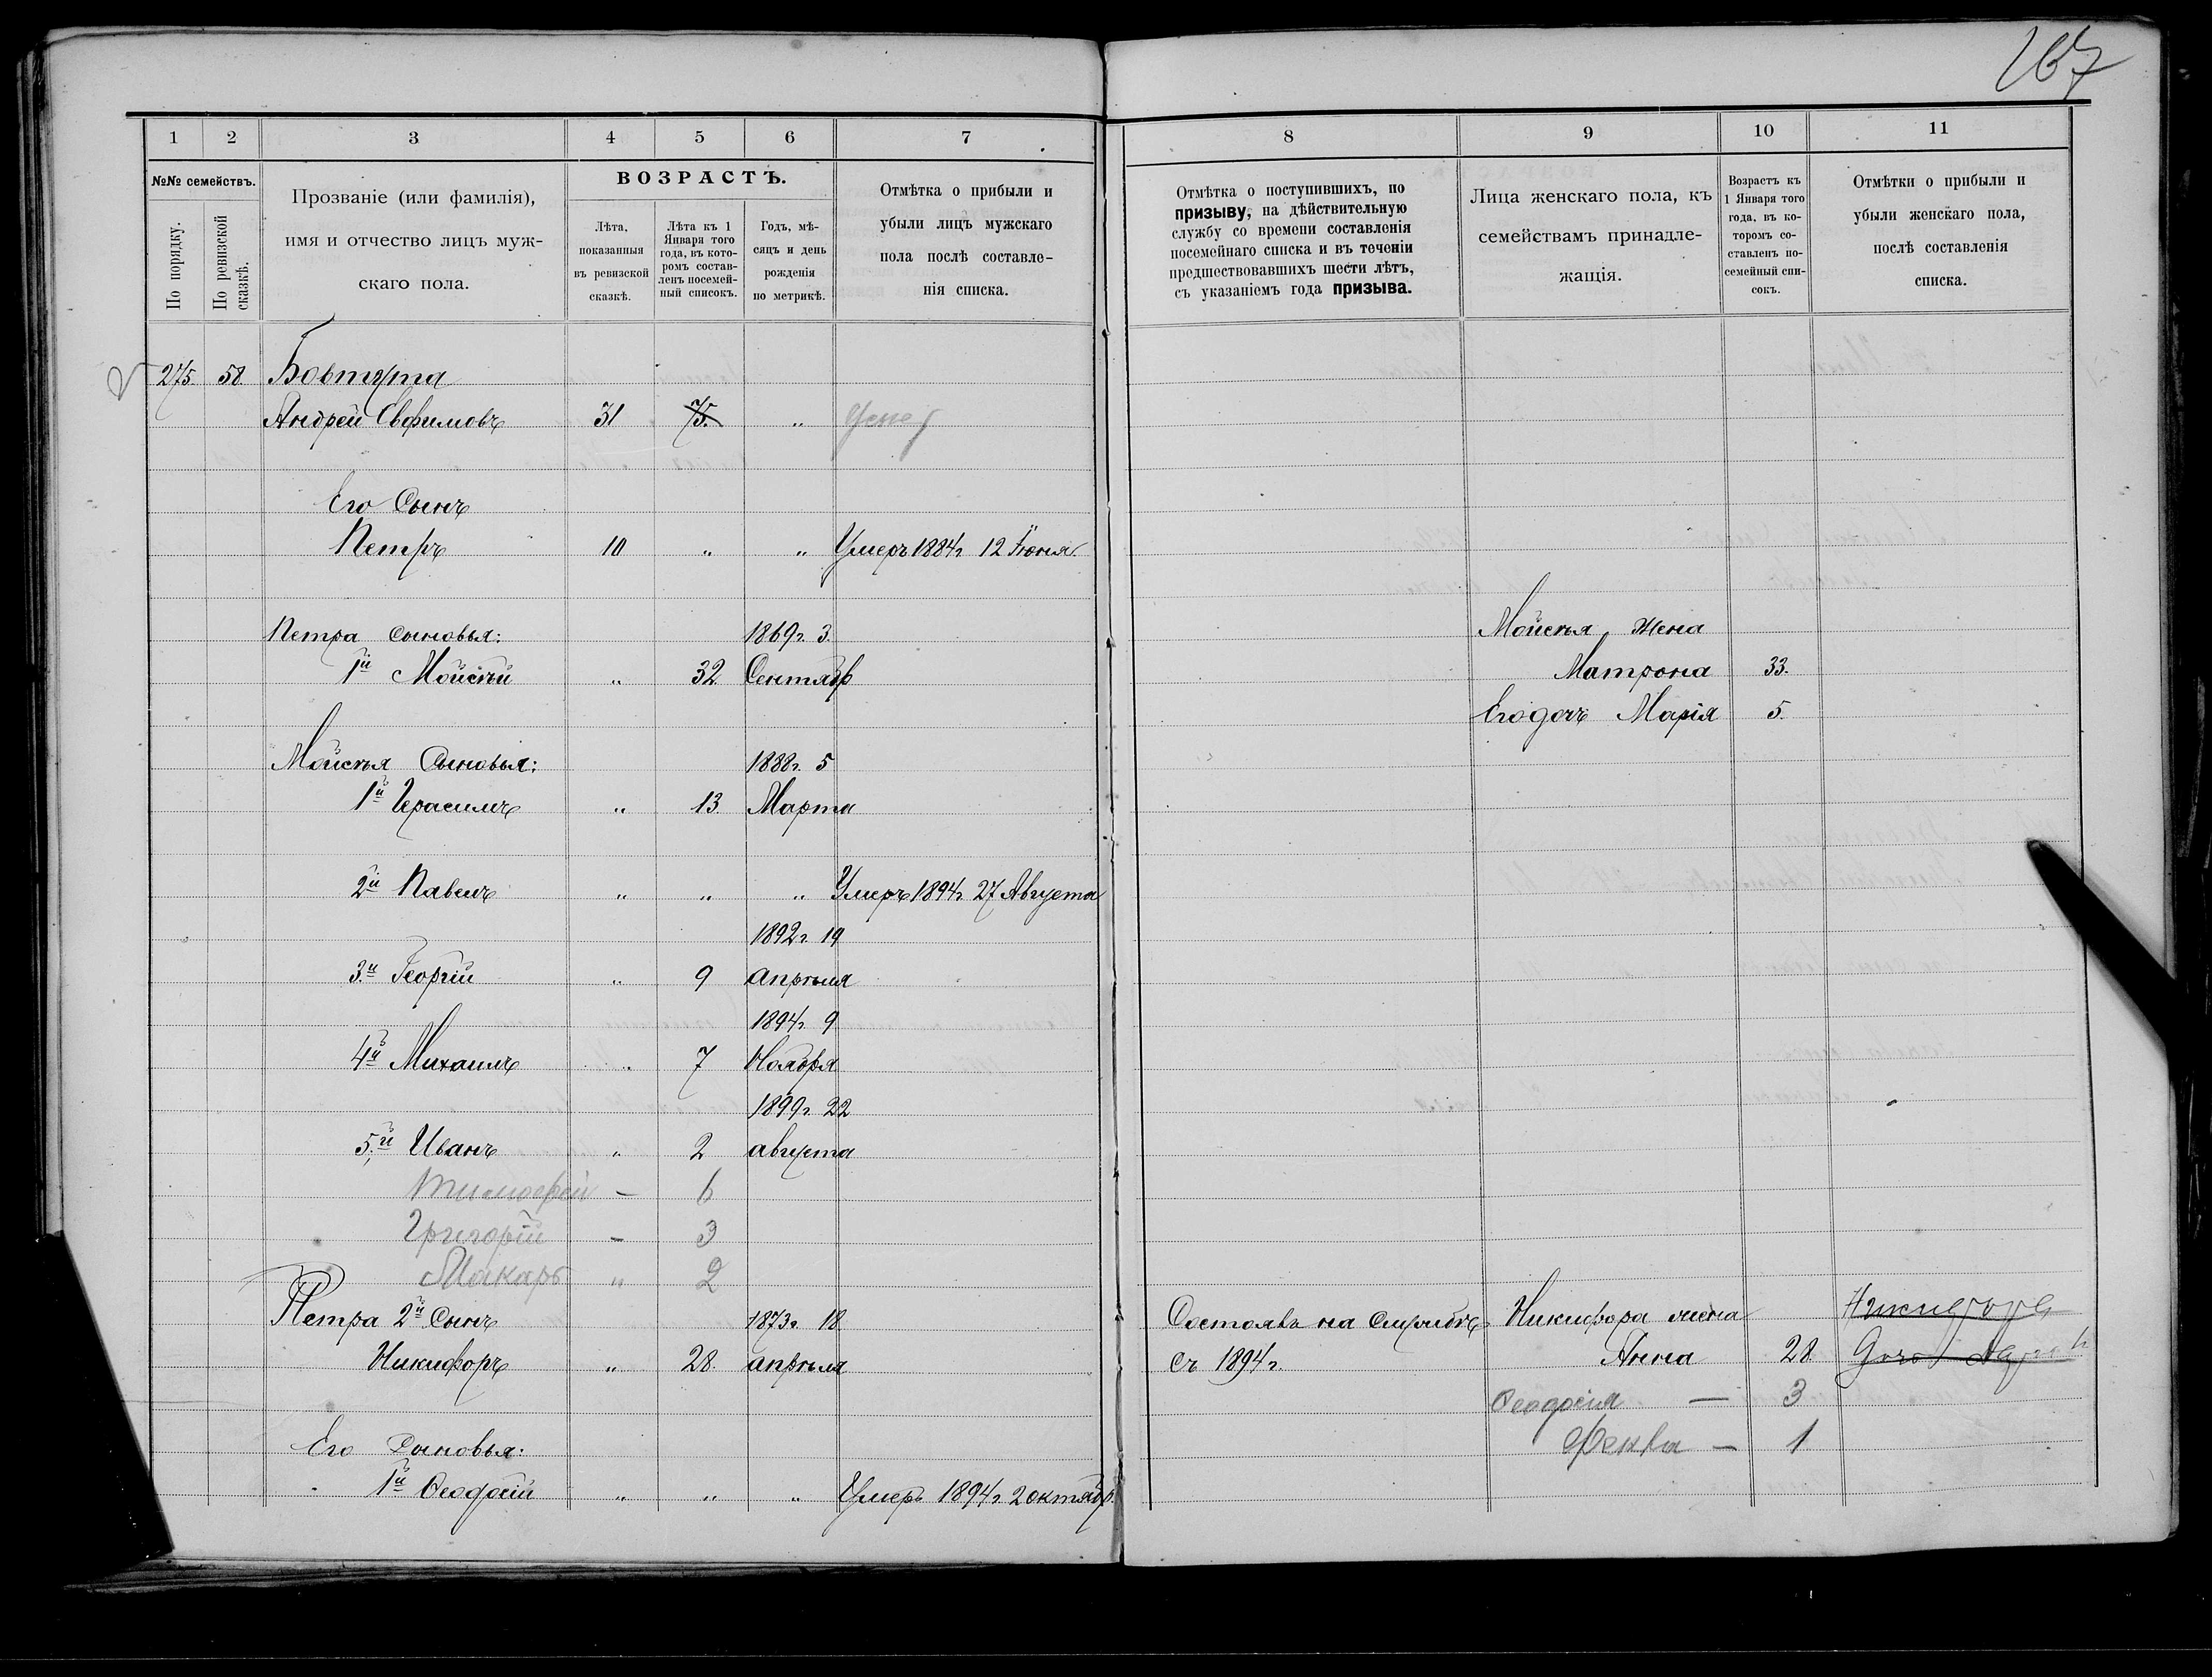 167
1 2 3 4 5 6 7
№№ семействъ.
По порядку.
По ревизской сказкѣ.
Прозваніе (или фамилія),
имя и отчество лицъ муж-
скаго пола.
ВОЗРАСТЪ.
Лѣта,
показанныя
въ ревизской
сказкѣ.
Лѣта къ 1
Января того
года, въ кото-
ромъ состав-
ленъ посемей-
ный списокъ.
Годъ, мѣ-
сяцъ и день
рожденія
по метрикѣ.
Отмѣтка о прибыли и
убыли лицъ мужскаго
пола послѣ составле-
нія списка.
275 58 Бовтута
Андрей Евфимовъ 31 75. „
Его Сынъ
Петръ 10 „ „ Умеръ 1884г 12 Іюня
Петра сыновья: 1869г. 3.
1й Мойсѣй „ 32 Сентябр
Мойсѣя Сыновья: 1888г. 5
1й Герасимъ „ 13. Марта
2й Павелъ „ „ „ Умеръ 1894г 27 Августа
1892г. 19
3й Георгій „ 9 апрѣля
1894г. 9
4й Михаилъ „ 7 Ноября
1899г. 22
5й Иванъ „ 2 августа
Тимофей — 6
Григорій — 3
Макаръ „ 2
Петра 2й Сынъ 1873г. 18
Никифоръ „ 28. апрѣля
Его Сыновья:
1й Ѳеодосій „ „ „ Умеръ 1894г. 2 октябр.
8 9 10 11
Отмѣтка о поступившихъ, по
призыву, на дѣйствительную
службу со времени составленія
посемейнаго списка и въ теченіи
предшествовавшихъ шести лѣтъ,
съ указаніемъ года призыва.
Лица женскаго пола, къ
семействамъ принадле-
жащія.
Возрастъ къ
1 Января того
года, въ ко-
торомъ со-
ставленъ по-
семейный спи-
сокъ.
Отмѣтки о прибыли и
убыли женскаго пола,
послѣ составленія
списка.
Мойсѣя жена
Матрона 33.
Его дочь Марія 5.
Состоявъ на службѣ Никифора жена Никифора
съ 1894г. Анна 28
Ѳеодосія — 3
Фекла — 1